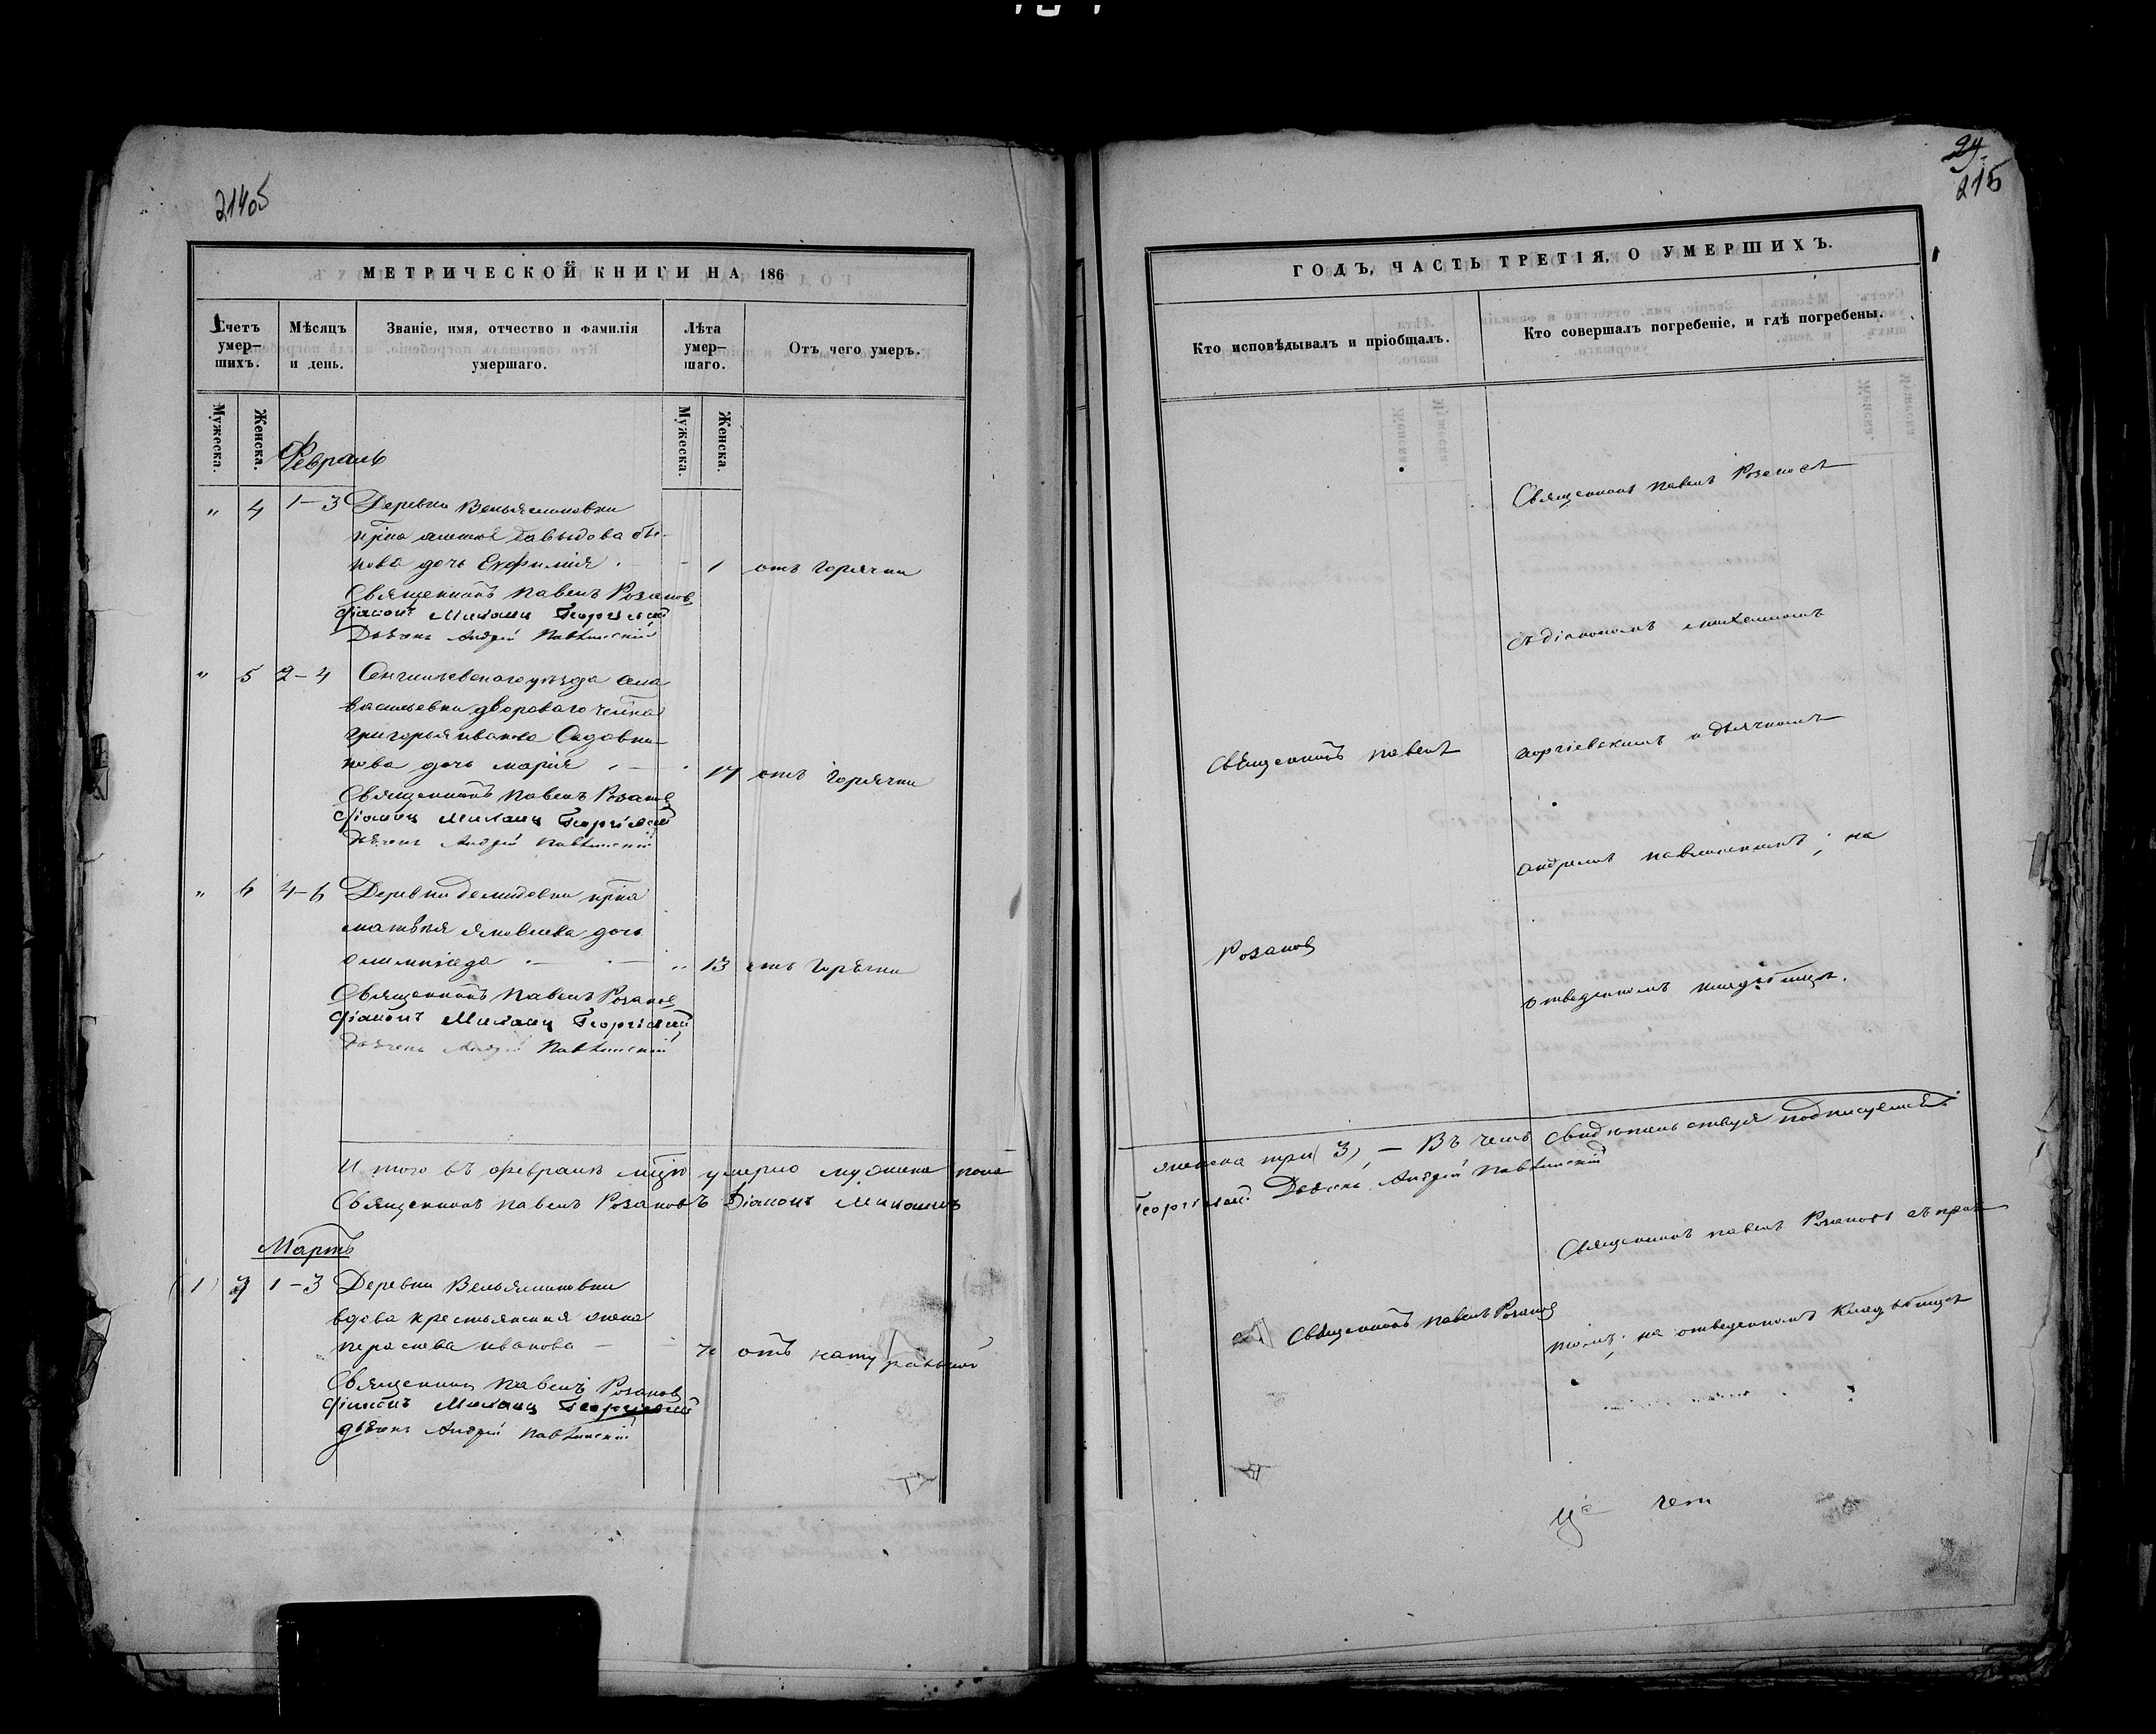 214об
МЕТРИЧЕСКОЙ КНИГИ НА 186
Счетъ умер-шихъ.
Мѣсяцъ и день.
Званіе, имя, отчество и фамилія умершаго.
Лѣта умер-шаго.
Отъ чего умеръ.
Мужеска.
Женска.
Мужеска.
Женска.
Февраль
" 4 1-3 Деревни Вельяминовки
Давыдова
нова дочь Евфимія 1 отъ горячки
Священникъ Павелъ Розановъ
Діаконъ Михаилъ Георгіевскій
Дьячекъ Андрей Павлинскій
" 5 2-4 Сенгилѣевскаго уѣзда села
Васильевки двороваго челка
Григорья Иванова Садовни-
кова дочь Марія 17 отъ горячки
Священникъ Павелъ Розановъ
Діаконъ Михаилъ Георгіевскій
Дьячекъ Андрей Павлинскій
" 6 4-6 Деревни Демидовки крна
Матвѣя Яковлева дочь
Олимпіада " 13 отъ горячки
Священникъ Павелъ Розановъ
Діаконъ Михаилъ Георгіевскій
Дьячекъ Андрей Павлинскій
Итого въ февралѣ мцѣ умерло мужеска пола
Священникъ Павелъ Розановъ Діаконъ Михаилъ
Мартъ
(1) 7 1-3 Деревни Вельяминовки
вдова крестьянская жена
Параскева Иванова 70 отъ натуральной
Священникъ Павелъ Розановъ
Діаконъ Михаилъ Георгіевскій
Дьячекъ Андрей Павлинскій
24
215
ГОДЪ, ЧАСТЬ ТРЕТІЯ, О УМЕРШИХЪ.
Кто исповѣдывалъ и пріобщалъ.
Кто совершалъ погребеніе, и гдѣ погребены.
Священникъ Павелъ Розановъ
съ діакономъ Михаиломъ
Священникъ Павелъ
Георгіевскимъ и дьячкомъ
Андреемъ Павлинскимъ; на
Розановъ
отведенномъ кладбищѣ.
женска три (3), — Въ чемъ свидѣтельствуя подписуемся.
Георгіевскій Дьячекъ Андрей Павлинскій
Священникъ Павелъ Розановъ съ прич-
Священникъ Павелъ Розановъ
томъ; на отведенномъ кладбищѣ